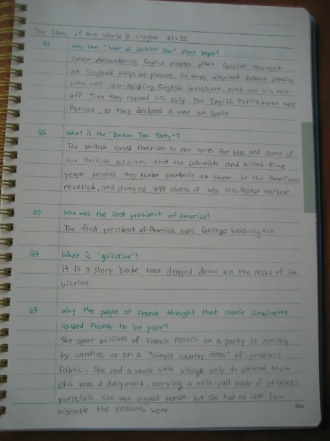 The Story of the World 3 Chapter 21-25
Q1 Why the "War of Jenkins' Ear" started?
After encountering English pirates often, Spanish thought
all England ships as pirates. So they attacked Robert Jenkins,
who was law-abiding English merchant, and cut his ear
off. The English Parliament was
furious, so they declared a war on Spain.
Q2 What is the "Boston Tea Party"?
The British forced American to pay taxes for tea, and some of
the British soldiers shot the colonists and killed five
people because they threw snowballs at them. So the Americans
rebelled, and dumped chests of tea into Boston Harbor.
Q3 Who was the first president of America?
The first president of America was George Washington.
Q4 What is "guillotine"?
It is a sharp blade that dropped down on the necks of the
victims.
Q5 Why the people of France thought that Marie Antoinette
caused France to be poor?
She spent millions of French francs on a party lit entirely
by candles or on a "simple country dress" of priceless
fabric. She had a whole little village only to pretend that
she was a dairymaid, carrying a milk-pail made of priceless
porcelain. She was a good woman but she had no idea how
miserable the peasants were.